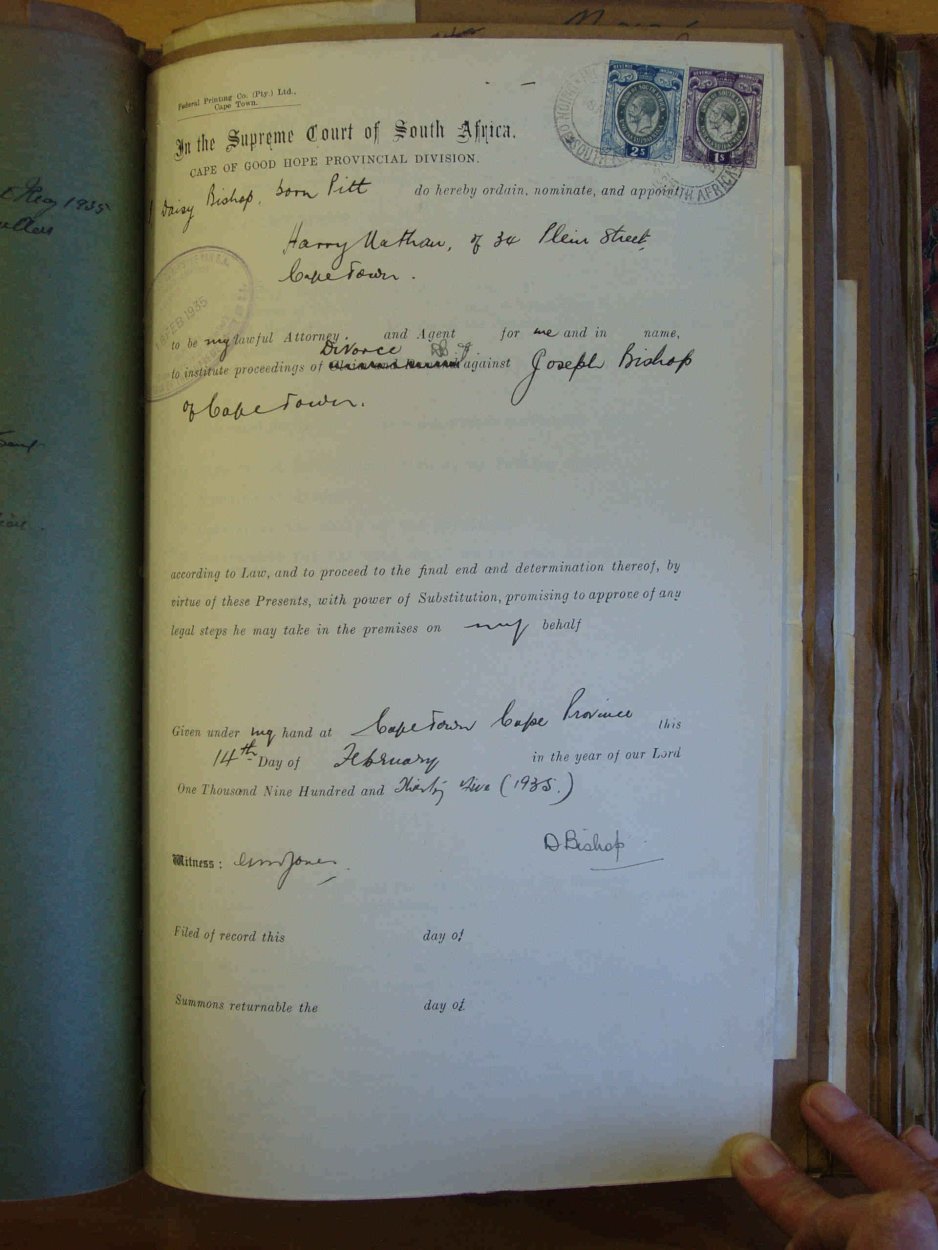 Federal Printing Co. (Pty.) Ltd.,
Cape Town.
In the Supreme Court of South Africa.
CAPE OF GOOD HOPE PROVINCIAL DIVISION.
I Daisy Bishop, born Pitt do hereby ordain, nominate, and appoint
Harry Nathan, of 34 Plein Street,
Cape Town.
to be my lawful Attorney, and Agent for me and in name,
Divorce
to institute proceedings of against Joseph Bishop
of Cape Town.
according to Law, and to proceed to the final end and determination thereof, by
virtue of these Presents, with power of Substitution, promising to approve of any
legal steps he may take in the premises on my behalf
Given under my hand at Cape Town Cape Province this
14th Day of February in the year of our Lord
One Thousand Nine Hundred and Thirty Five (1935.)
D Bishop
Witness: Jones
Filed of record this day of
Summons returnable the day of
REVENUE INKOMSTE
2s
REVENUE INKOMSTE
1s
SOUTH AFRICA
FEB 1935
May 1935